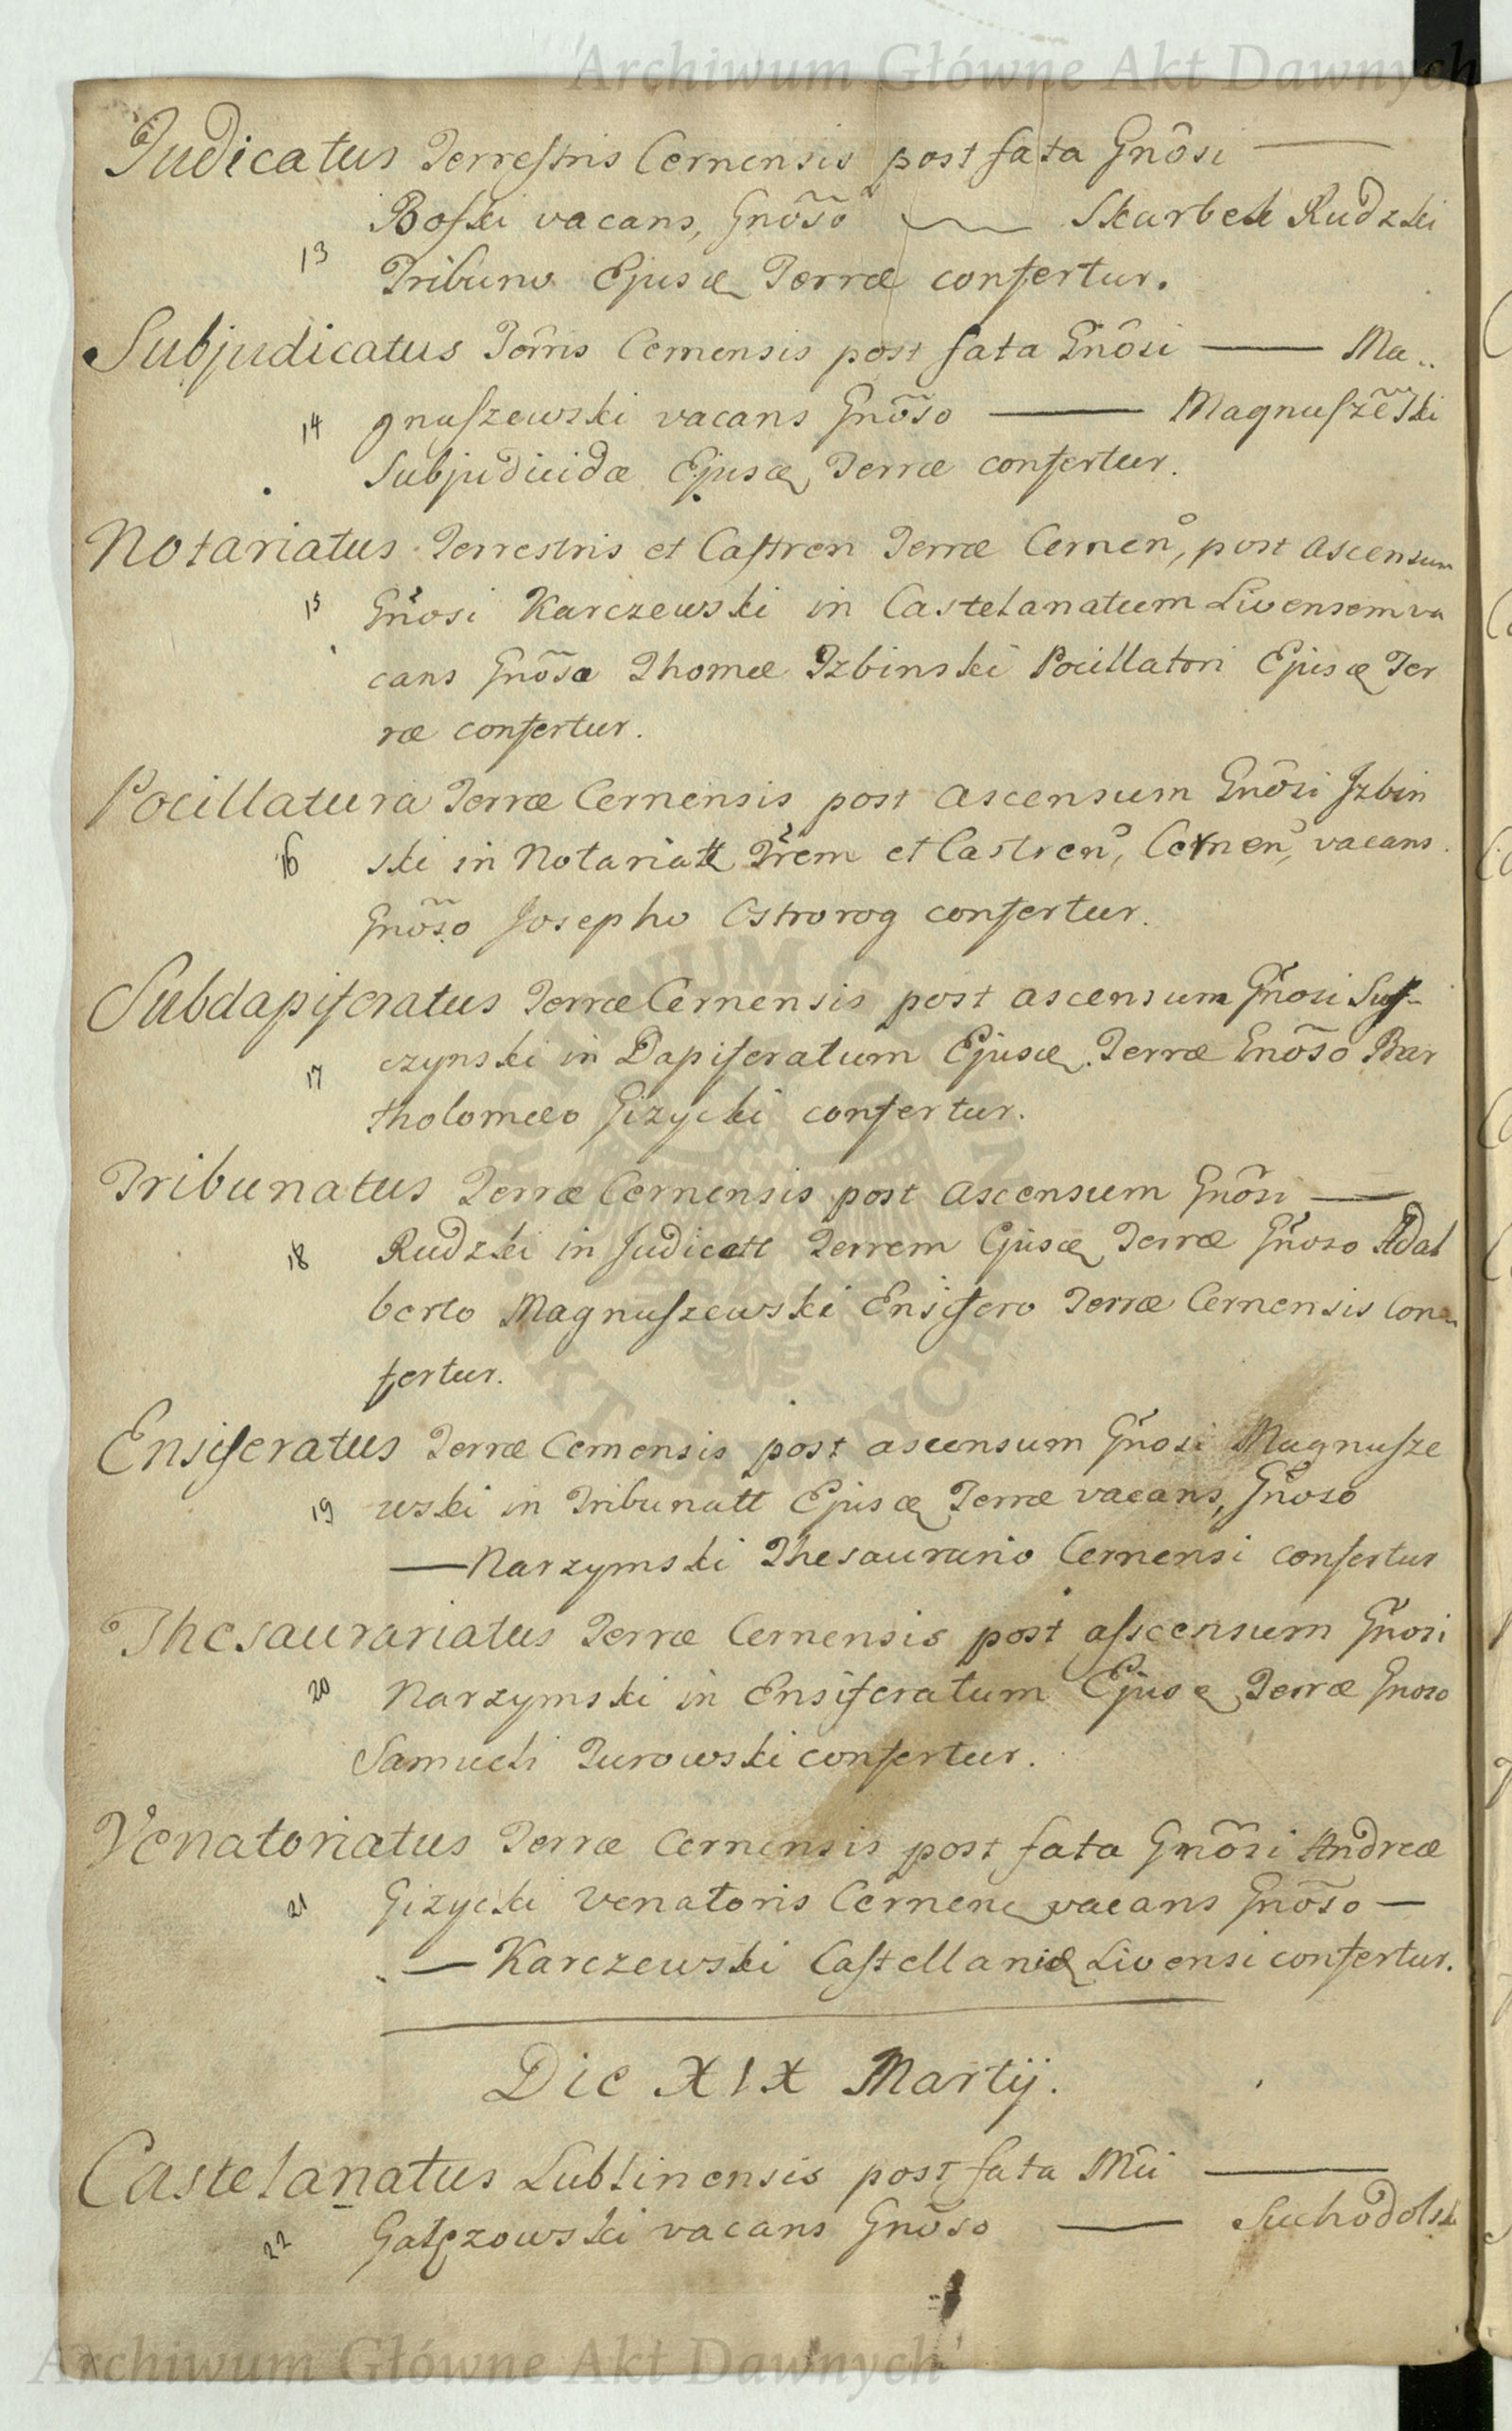 Archiwum Główne Akt Dawnych
Judicatus Terrestris Cernensis post fata Gnôsi —
Boski vacans, Gnõso — Skarbek Rudzki
13 Tribuno Ejusæ Terræ confertur.
Subjudicatus Terris Cernensis post fata Gnôsi — Ma..
14 gnuszewski vacans Gnõso — Magnuszẽski
Subjudicidæ Ejusæ Terræ confertur.
Notariatus Terrestris et Castren Terræ Cernen, post ascensum
15 Gnosi Karczewski in Castelanatum Livensem va
cans Gnõso Thomæ Izbinski Pocillatori Ejusæ Ter
ræ confertur.
Pocillatura Terræ Cernensis post ascensum Gnôsi Izbin
16 ski in Notariatt Trem et Castren, Cernen, vacans.
Gnõso Josepho Ostrorog confertur.
Subdapiferatus Terræ Cernensis post ascensum Gnosi
17 czynski in Dapiferatum Ejusæ Terræ Gnõso Bar
tholomæo Gizycki confertur.
Tribunatus Terræ Cernensis post ascensum Gnõsi —
18 Rudzki in Judicatt Terrem Ejusæ Terræ Gnoso Adal
berto Magnuszewski Ensifero Terræ Cernensis Con
fertur.
Ensiferatus Terræ Cernensis post ascensum Gnosi Magnusze
19 wski in Tribunatt Ejusæ Terræ vacans, Gnoso
— Narzymski Thesaurario Cernensi confertur
Thesaurariatus Terræ Cernensis post asscensum Gnosi
20 Narzymski in Ensiferatum Ejusæ Terræ Gnoso
Samueli Turowski confertur.
Venatoriatus Terræ Cernensis post fata Gnõsi Andreæ
21 Gizycki Venatoris Cernen vacans Gnõso —
— Karczewski Castellanidæ Livensi confertur.
Die XIX Martij.
Castelanatus Lublinensis post fata Mû —
22 Gałęzowski vacans Gnõso — Suchodolsk
ARCHIWUM GŁÓWNE AKT DAWNYCH
Archiwum Główne Akt Dawnych